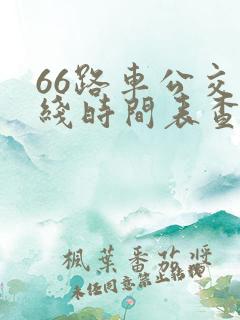 66路車公交
綫時間表查
楓葉番茄醬
未经同意禁止转载